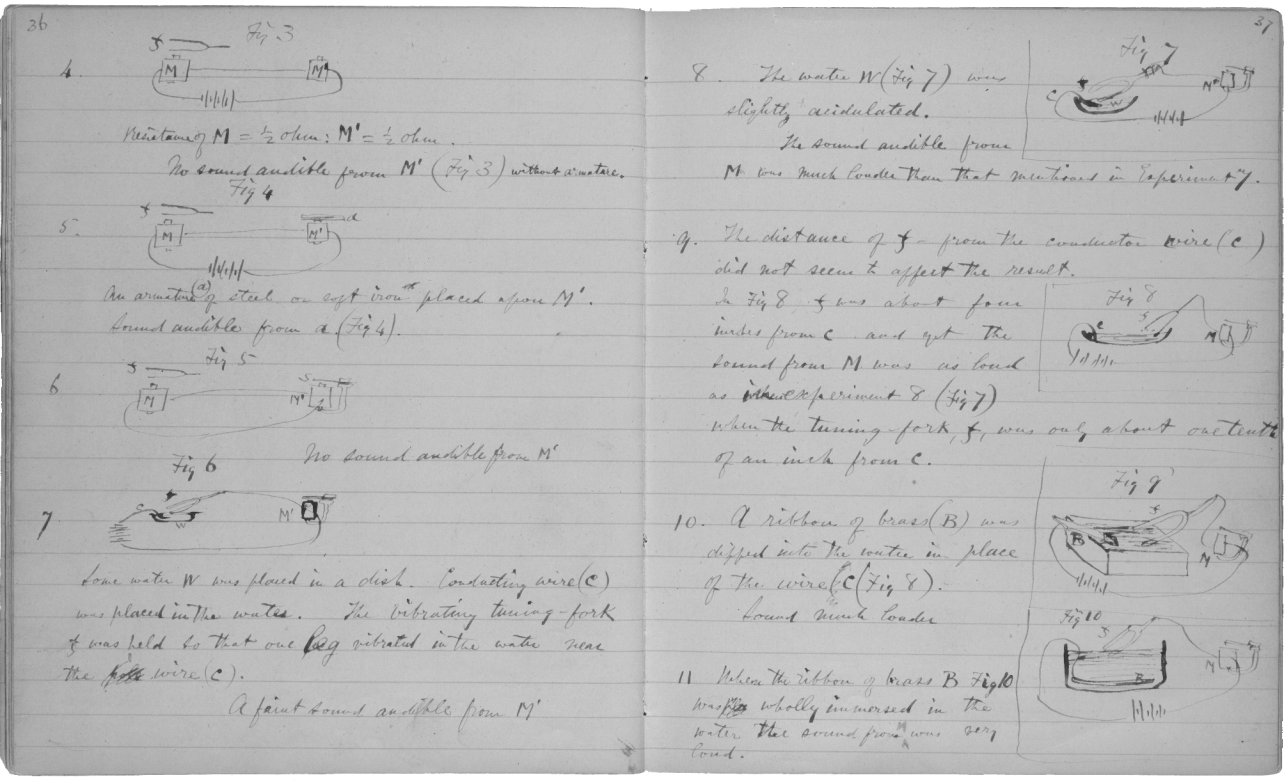 36
Fig 3
4.
f
M
M'
Resistance of M = ½ ohm: M' = ½ ohm.
No sound audible from M' (Fig 3) without armature.
Fig 4
5.
f
a
M
M'
An armature (a) of steel or soft iron placed upon M'.
Sound audible from a (Fig 4).
Fig 5
6
f
S
M
M'
No sound audible from M'
Fig 6
7
f
c
W
M'
Some water W was placed in a dish. Conducting wire (C)
was placed in the water. The vibrating tuning-fork
f was held so that one leg vibrated in the water near
the wire (C).
A faint sound audible from M'
37
Fig 7
8. The water W (Fig 7) was
slightly acidulated.
The sound audible from
M was much louder than that mentioned in Experiment 7.
f
C
W
M
9. The distance of f - from the conductor wire (C)
did not seem to affect the result.
In Fig 8 f was about four
inches from C and yet the
sound from M was as loud
as in experiment 8 (Fig 7)
when the tuning-fork, f, was only about one tenth
of an inch from C.
Fig 8
c
f
M
10. A ribbon of brass (B) was
dipped into the water in place
of the wire (C (Fig 8).
Sound much louder
Fig 9
f
B
M
11 When the ribbon of brass B Fig 10
was wholly immersed in the
water the sound from M was very
loud.
Fig 10
f
B
M